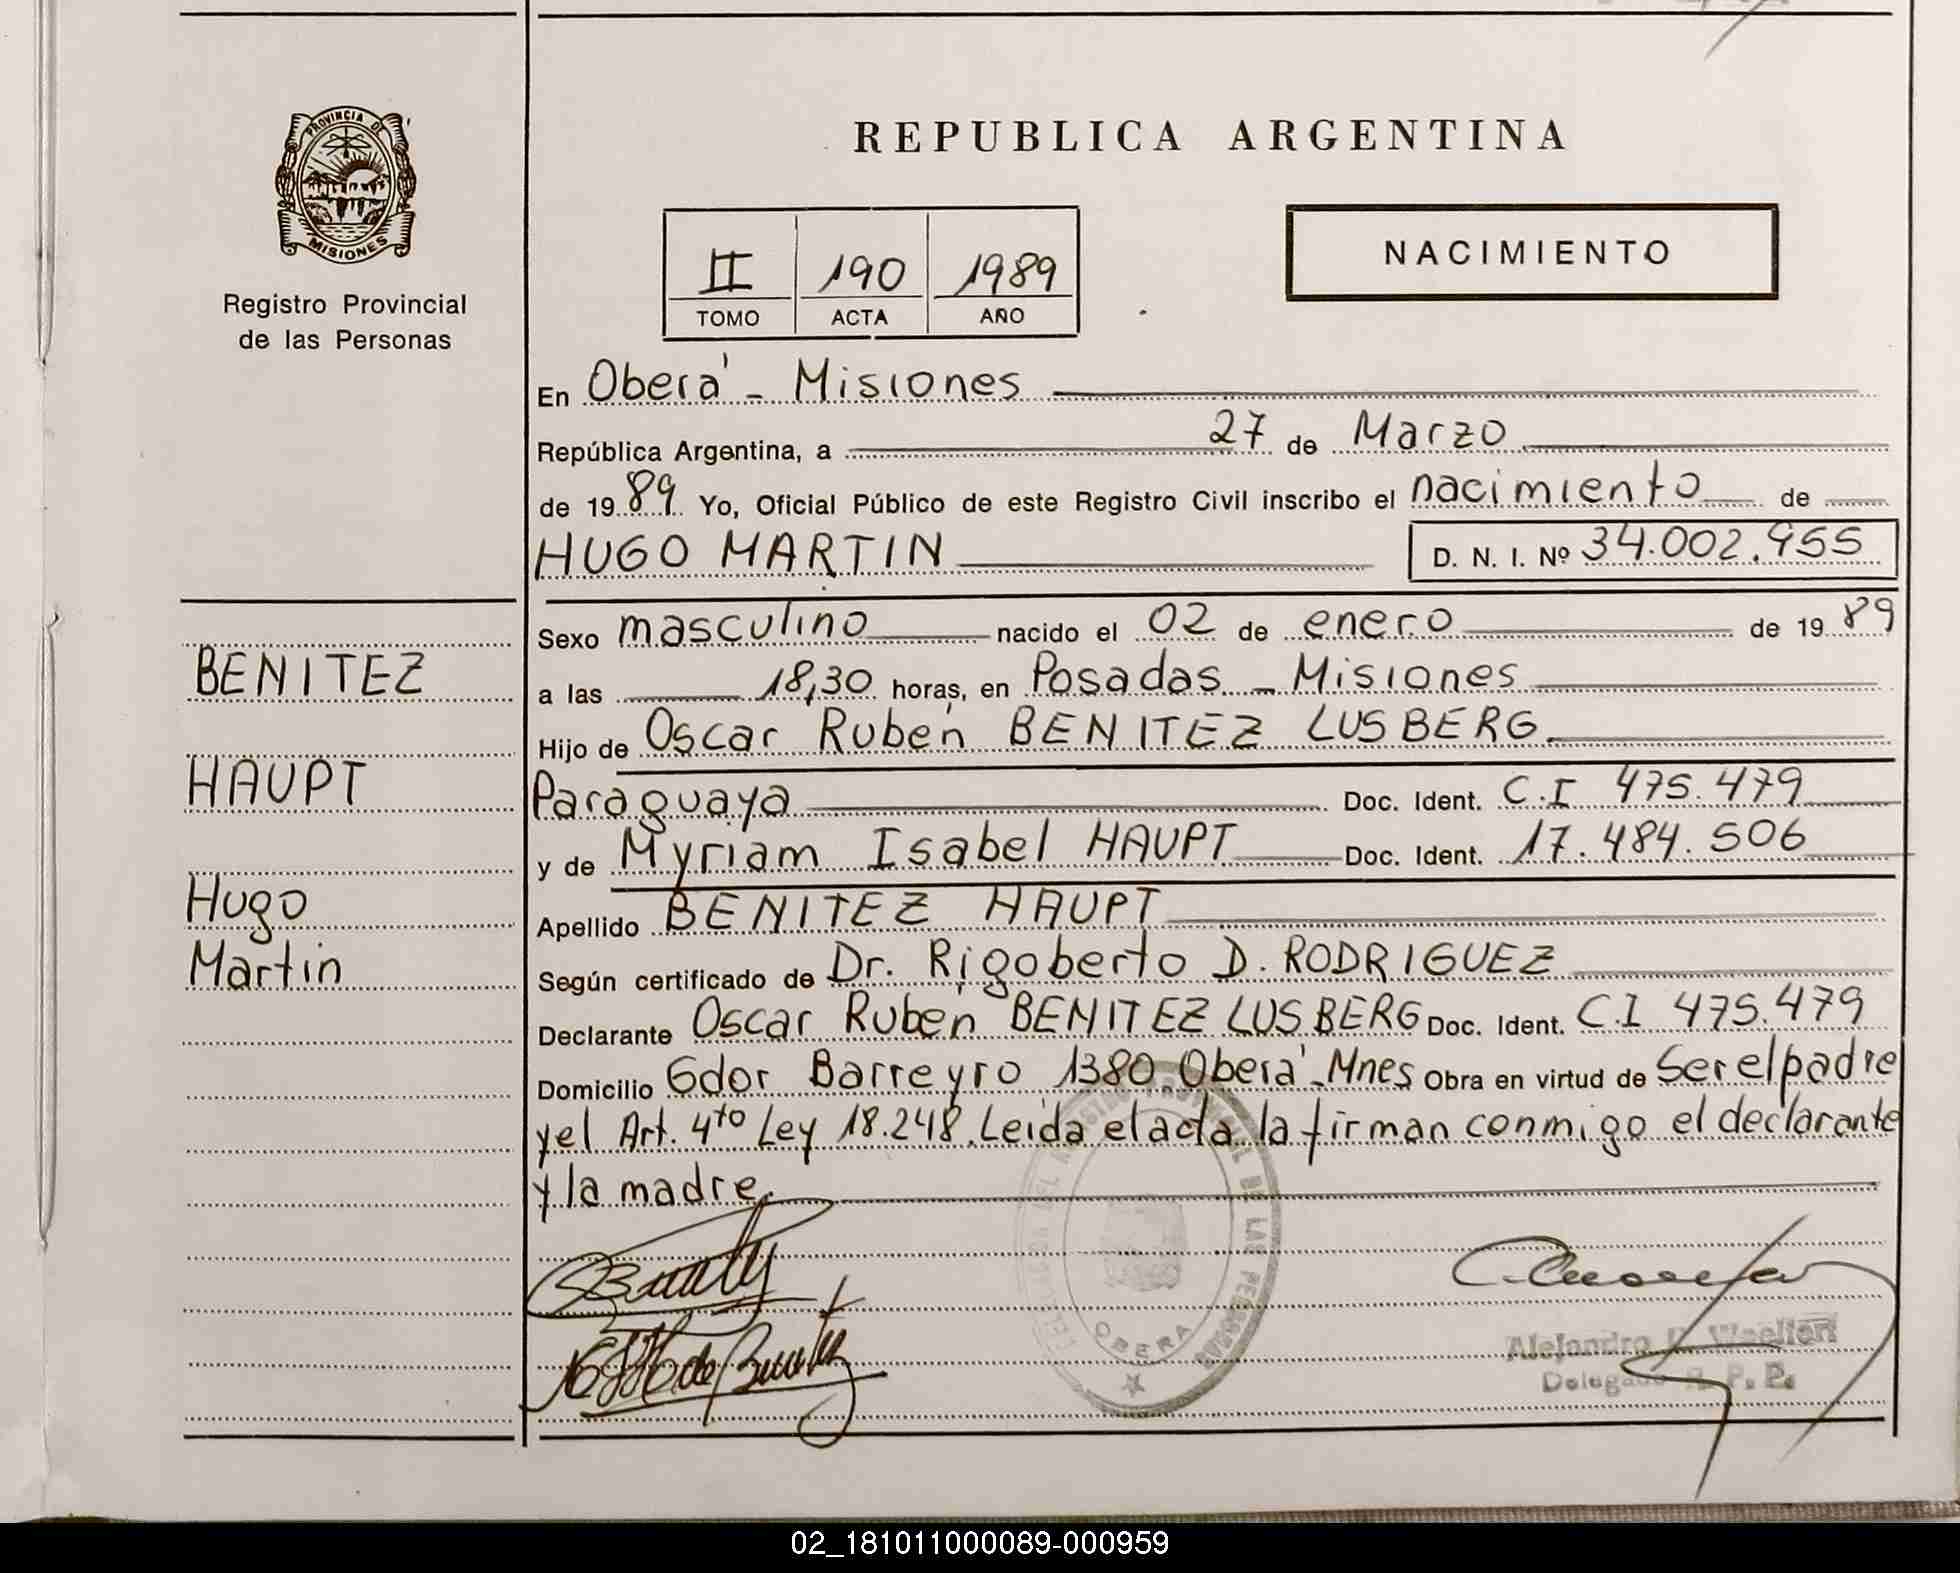 PROVINCIA DE
MISIONES
Registro Provincial
de las Personas
REPUBLICA ARGENTINA
II 190 1989
TOMO ACTA AÑO
NACIMIENTO
En Oberá - Misiones
República Argentina, a 27 de Marzo
de 1989 Yo, Oficial Público de este Registro Civil inscribo el nacimiento de
HUGO MARTIN D. N. I. Nº 34.002.955
Sexo masculino nacido el 02 de enero de 1989
a las 18,30 horas, en Posadas - Misiones
Hijo de Oscar Rubén BENITEZ LUSBERG
Paraguaya Doc. Ident. C.I 475.479
y de Myriam Isabel HAUPT Doc. Ident. 17.484.506
Apellido BENITEZ HAUPT
Según certificado de Dr. Rigoberto D. RODRIGUEZ
Declarante Oscar Rubén BENITEZ LUSBERG Doc. Ident. C.I 475.479
Domicilio Gdor Barreyro 1380 Oberá-Mnes Obra en virtud de ser el padre
y el Art. 4to Ley 18.248. Leida el acta la firman conmigo el declarante
y la madre.
BENITEZ
HAUPT
Hugo
Martin
OBERA
Alejandro
Delegado R. P. P.
02_181011000089-000959